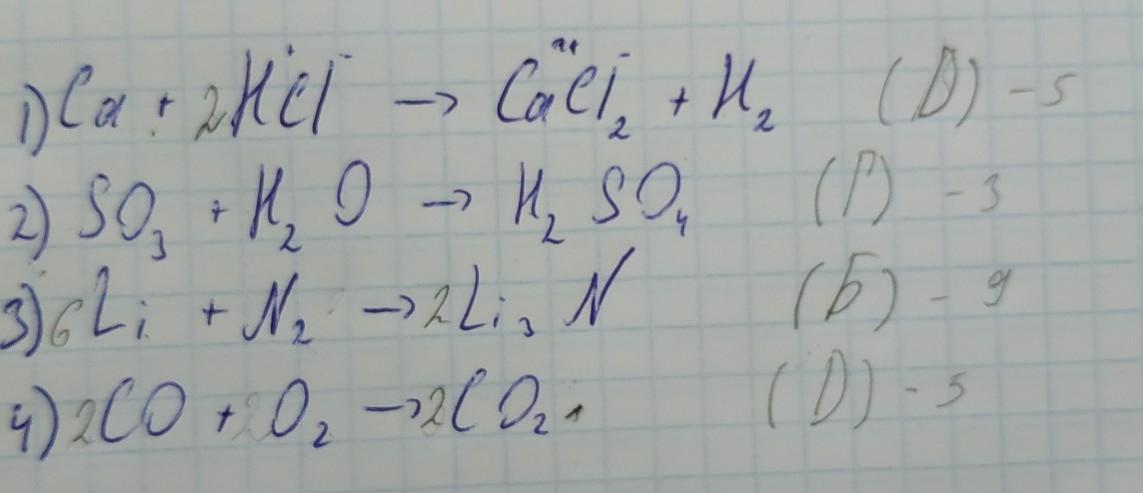 1) Ca + 2H⁺Cl⁻ → Ca²⁺Cl⁻₂ + H₂ (D) - 5
2) SO₃ + H₂O → H₂SO₄ (Г) - 3
3) 6Li + N₂ → 2Li₃N (Б) - 9
4) 2CO + O₂ → 2CO₂ (D) - 5